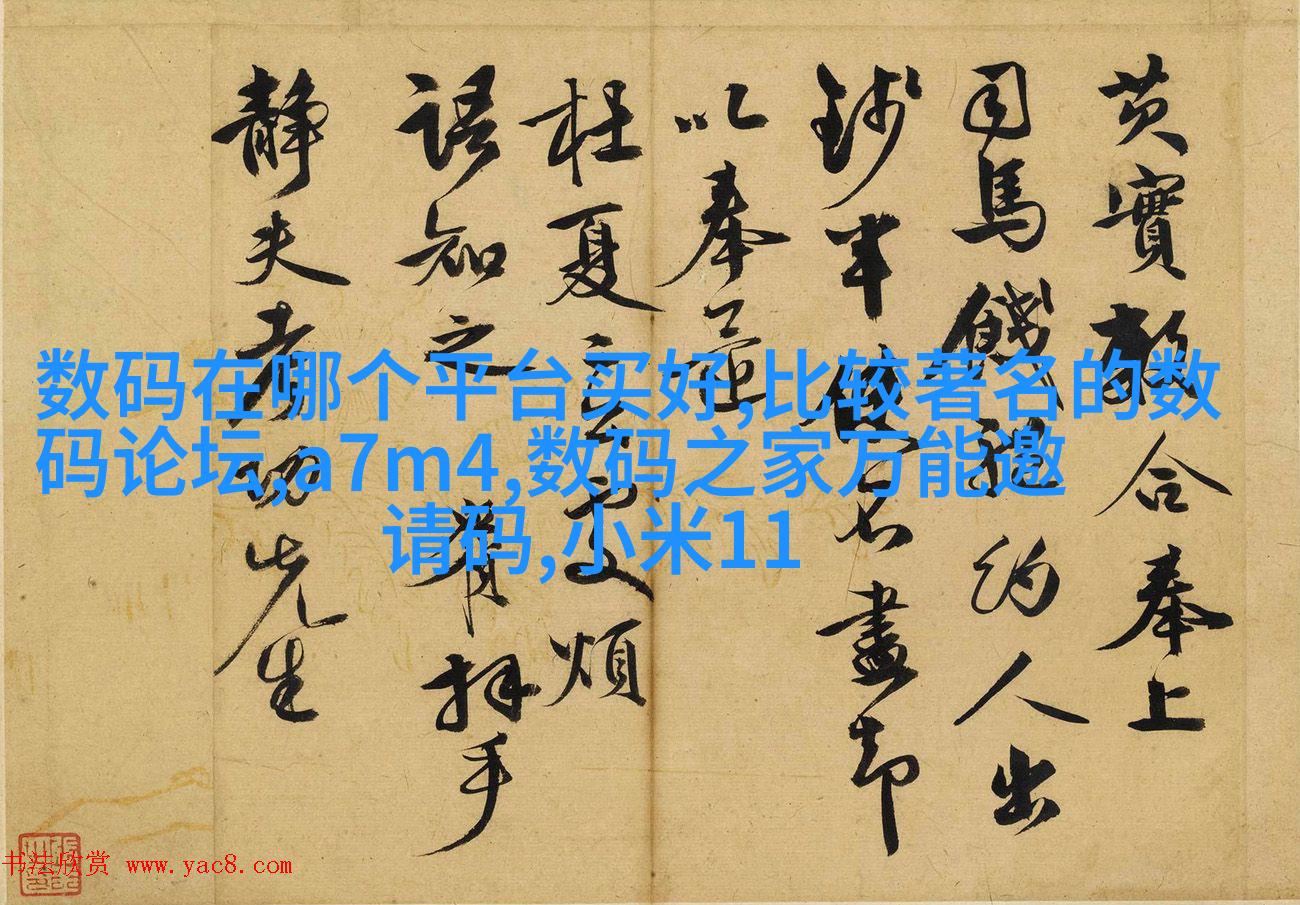 芡實數合奉上
司馬餞的人出
錢半盡却
以奉
杜夏煩
語知之拜手
靜夫先生
数码在哪个平台买好,比较著名的数
码论坛,a7m4,数码之家万能邀
请码,小米11
书法欣赏 www.yac8.com